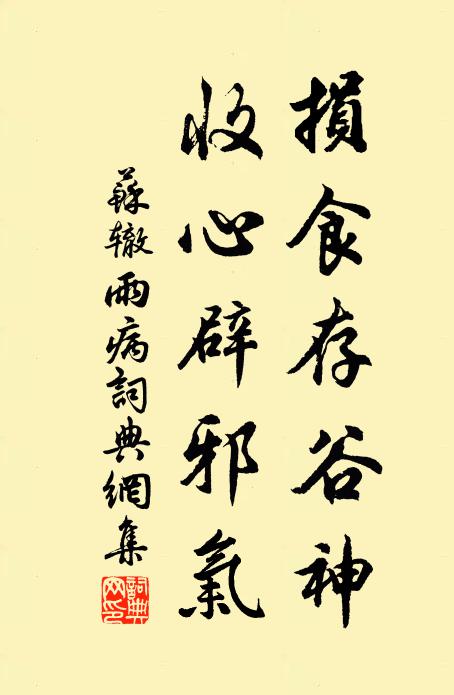 損食存谷神
收心辟邪氣
蘇辙雨病詞典網集
詞典网印